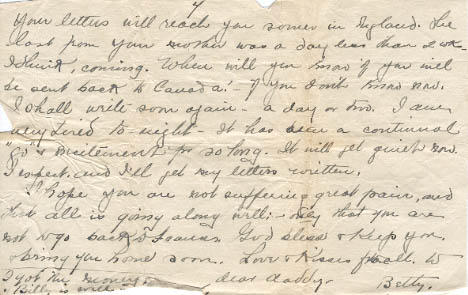 Your letters will reach you sooner in England. The
last from your mother was a day less than 2 wks
I think, coming. When will you know if you will
be sent back to Canada. - if you don't know now.
I shall write soon again - a day or two. I am
very tired to-night - It has been a continual
"go" & excitement for so long. It will get quiet now.
I expect. and I'll get my letters written.
I hope you are not suffering great pain, and
that all is going along well: - only that you are
not to go back to France. God bless & keep you.
& bring you home soon. Love & Kisses for all. to
dear daddy. Betty.
I got the money
Billy is well.